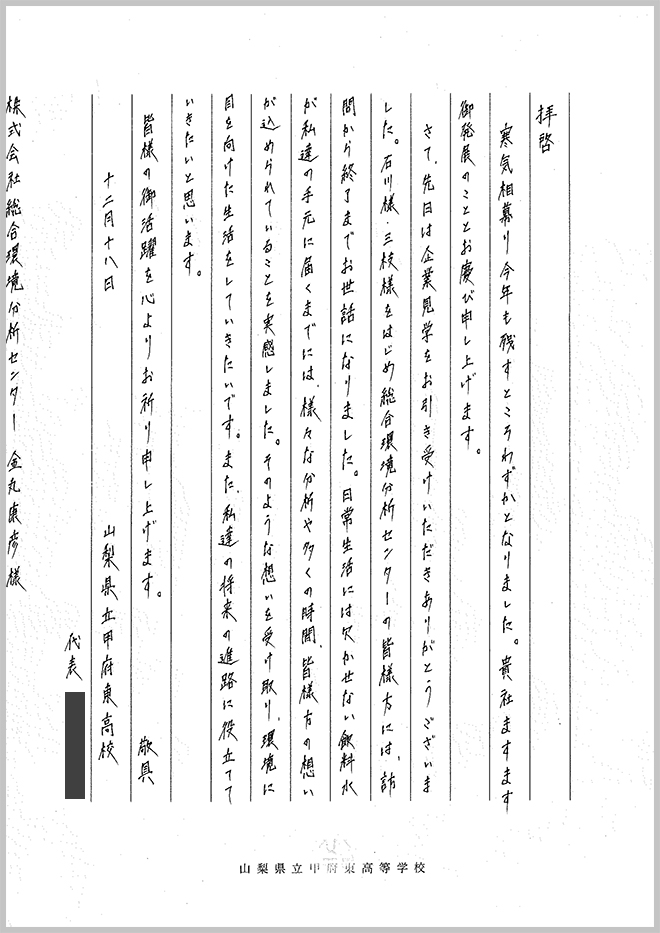 拝啓
寒気相募り今年も残すところわずかとなりました。貴社ますます
御発展のこととお慶び申し上げます。
さて、先日は企業見学をお引き受けいただきありがとうございま
した。石川様・三枝様をはじめ総合環境分析センターの皆様方には、訪
問から終了までお世話になりました。日常生活には欠かせない飲料水
が私達の手元に届くまでには、様々な分析や多くの時間、皆様方の想い
が込められていることを実感しました。そのような想いを受け取り、環境に
目を向けた生活をしていきたいです。また、私達の将来の進路に役立てて
いきたいと思います。
皆様の御活躍を心よりお祈り申し上げます。
敬具
十二月十八日
山梨県立甲府東高校
代表
株式会社総合環境分析センター 金丸康彦様
山梨県立甲府東高等学校